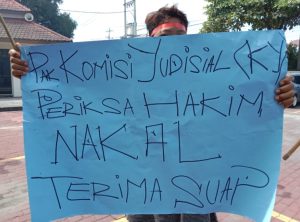 PAK KOMISI YUDISIAL (KY)
PERIKSA HAKIM
NAKAL
TERIMA SUAP